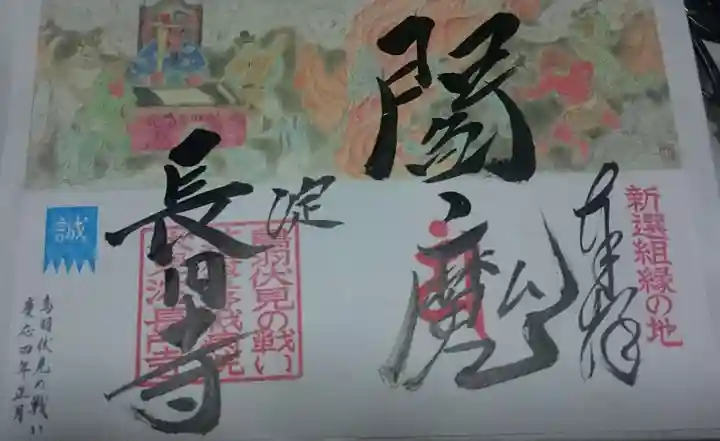 新選組縁の地
奉拝
閻魔
淀
長円寺
鳥羽伏見の戦い
誠
鳥羽伏見の戦い
慶応四年正月